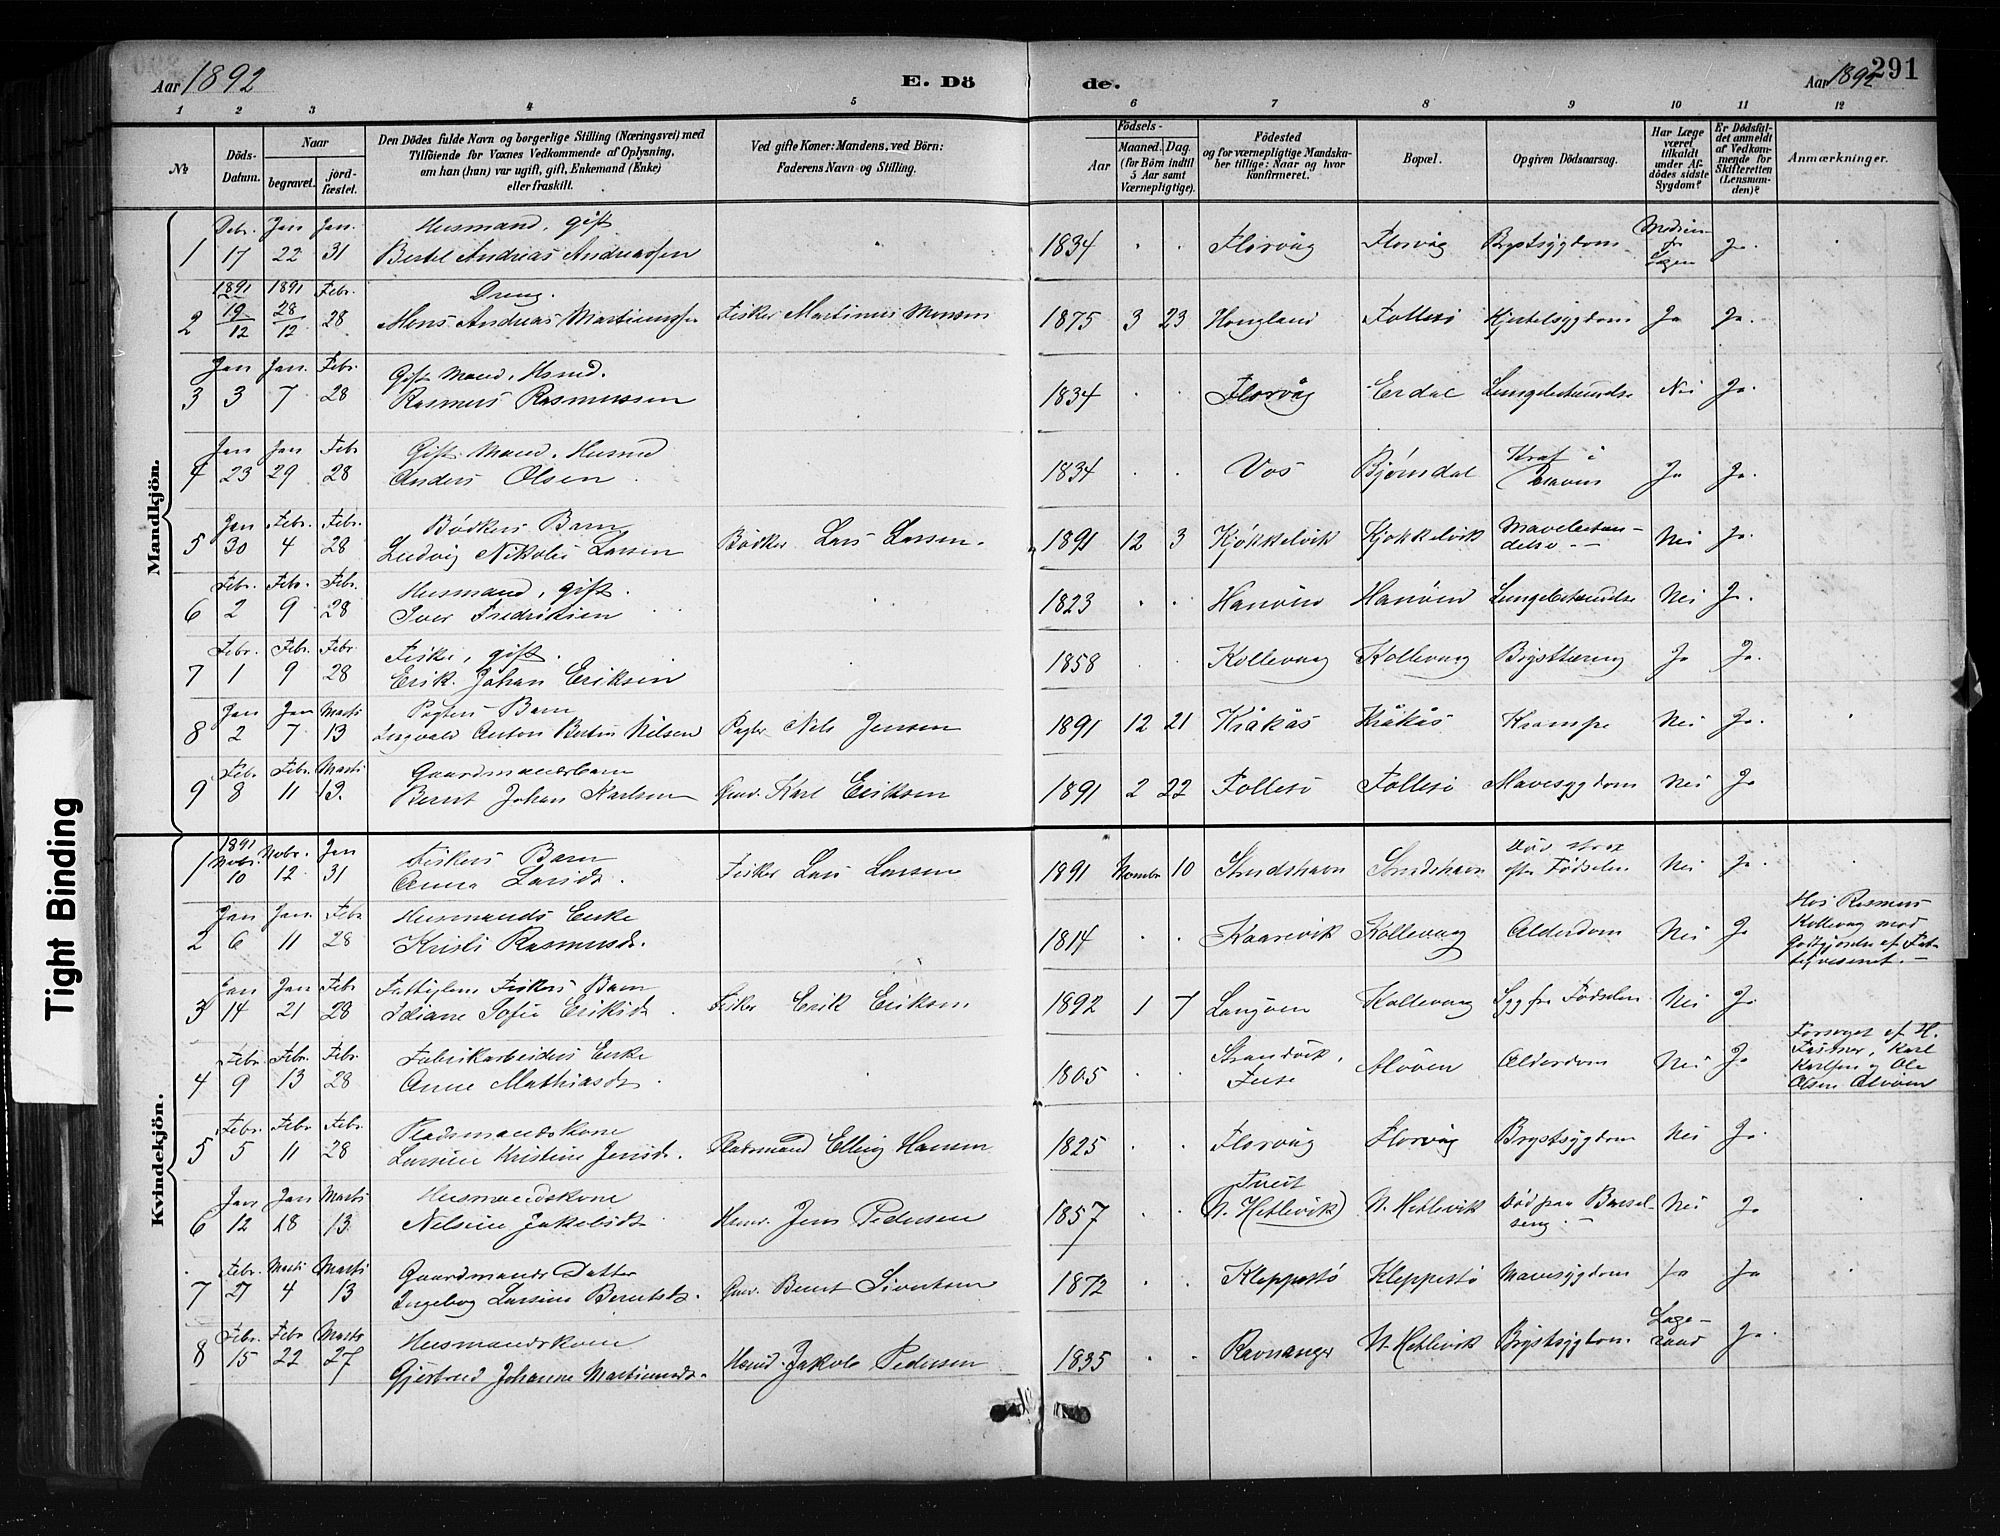 Aar 1892
E. Dö
de.
Aar 1892
291
1 2 3 4 5 6 7 8 9 10 11 12
№
Döds-Datum.
Naar
begravet.
jord-fæstet.
Den Dödes fulde Navn og borgerlige Stilling (Næringsvei) med
Tilföiende for Voxnes Vedkommende af Oplysning,
om han (hun) var ugift, gift, Enkemand (Enke)
eller fraskilt.
Ved gifte Koner: Mandens, ved Börn:
Faderens Navn og Stilling.
Födsels-
Aar
Maaned. Dag.
(for Börn indtil
5 Aar samt
Værnepligtige).
Födested
og for værnepligtige Mandska-
ber tillige: Naar og hvor
konfirmeret.
Bopæl.
Opgiven Dödsaarsag.
Har Læge
været
tilkaldt
under Af-
dödes sidste
Sygdom?
Er Dödsfal-
det anmeldt
af Vedkom-
mende for
Skifteretten
(Lensman-
den)?
Anmærkninger.
Mandkjön.
Debr. Jan Jan. Husmand, gift
1 17 22 31 Bertel Andreas Andreassen 1834 Florvåg Florvåg Brystsygdom Ja.
1891 1891 Febr. Dreng.
2 19/12 28/12 28 Mons Andreas Martinussen Fisker Martinus Monsen 1875 3 23 Hougland Follesö Hjertesygdom Ja Ja.
Jan Jan. Febr. Gift Mand, Hsmd.
3 3 7 28 Rasmus Rasmussen 1834 Florvåg Erdal Lungebetændelse Nei Ja.
Jan Jan Febr Gift Mand, Husmd
4 23 29 28 Anders Olsen 1834 Vos Bjørndal Kræft i Maven Ja Ja.
Jan Febr. Febr. Bødkers Barn
5 30 4 28 Ludvig Nikolai Larsen Bødker Lars Larsen. 1891 12 3 Kjøkkelvik Kjøkkelvik Mavebetæn-delse Nei Ja.
Febr. Febr. Febr. Husmand, gift.
6 2 9 28 Iver Fredriksen 1823 Hanöen Hanöen Lungebetændelse Nei Ja.
Febr. Febr. Febr. Fisker, gift.
7 1 9 28 Erik Johan Eriksen 1858 Kollevaag Kollevaag Brysttæring Ja Ja.
Jan Jan Marts Pagters Barn
8 2 7 13 Ingvald Anton Bertin Nilsen Pagter Nels Jensen 1891 12 21 Kråkås Kråkås Krampe Nei Ja.
Febr. Febr. Marts Gaardmandsbarn
9 8 11 13. Bernt Johan Karlsen Gmd. Karl Eriksen 1891 2 22 Follesö Follesö Mavesygdom Nei Ja
Kvindekjön.
1891 Novbr. Novbr. Jan Fiskers Barn
1 10 12 31 Anna Larsdt. Fisker Lars Larsen 1891 Novmbr 10 Strudshavn Strudshavn Död strax efter Födselen Nei Ja.
Jan Jan. Febr Husmands Enke
2 6 11 28 Kristi Rasmusdt. 1814 Kaarevik Kollevaag Alderdom Nei Ja Hos Rasmus Kollevaag mod Godtgjörelse af Fat-tigvesenet.
Jan Jan Febr Fattiglem Fiskers Barn
3 14 21 28 Idiane Sofie Eriksdt. Fisker Erik Eriksen 1892 1 7 Langöen Kollevaag Syg fra Födselen Nei Ja.
Febr. Febr. Febr. Fabrikarbeiders Enke
4 9 13 28 Anne Mathiasdt. 1805 Strandvik, Fuse Alvöen Alderdom Nei Ja Forsørget af H. Fastner, Karl Karlsen og Ole Olsen Alvöen
Febr. Febr Febr. Pladsmandskone
5 5 11 28 Larsine Kristine Jensdt. Pladsmand Elling Hansen 1825 Florvåg Florvåg Brystsygdom Nei Ja.
Jan Jan Marts Husmandskone
6 12 18 13. Nelsine Jakobsdt. Hsmd. Jens Pedersen 1857 Tveit (N. Hetlevik) N. Hetlevik Död paa Barsel-seng. Nei Ja
Febr. Marts Marts Gaardmands Datter
7 27 4 13 Ingeborg Larsine Berntsdt. Gmd. Bernt Sivertsen 1872 Kleppestö Kleppestö Mavesygdom Ja Ja
Febr. Febr Marts Husmandskone
8 15 22 27 Gjertrud Johanne Martinusdt. Hsmd. Jakob Pedersen 1835 Ravnanger N. Hetlevik Brystsygdom Læge-raad Ja.
Tight Binding